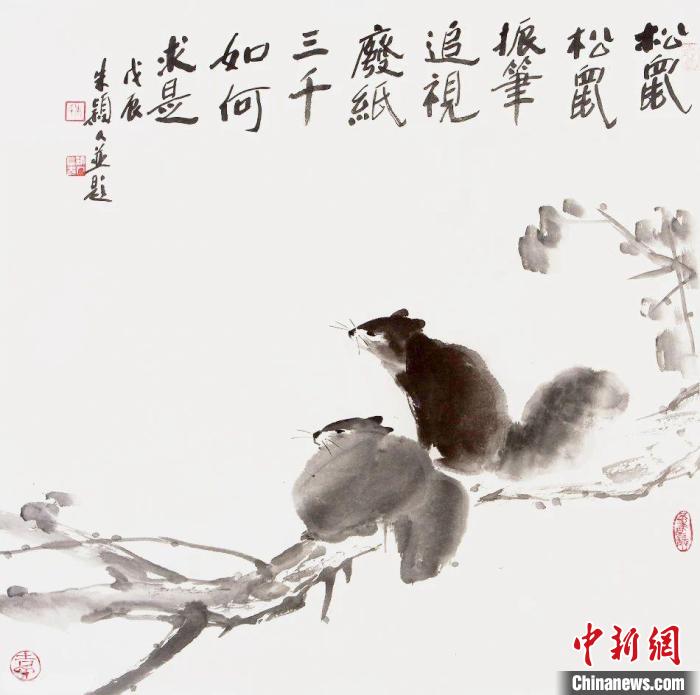 松鼠
松鼠
振筆
追視
廢紙
三千
如何
求是
戊辰
朱穎人並題
中新网
Chinanews.com